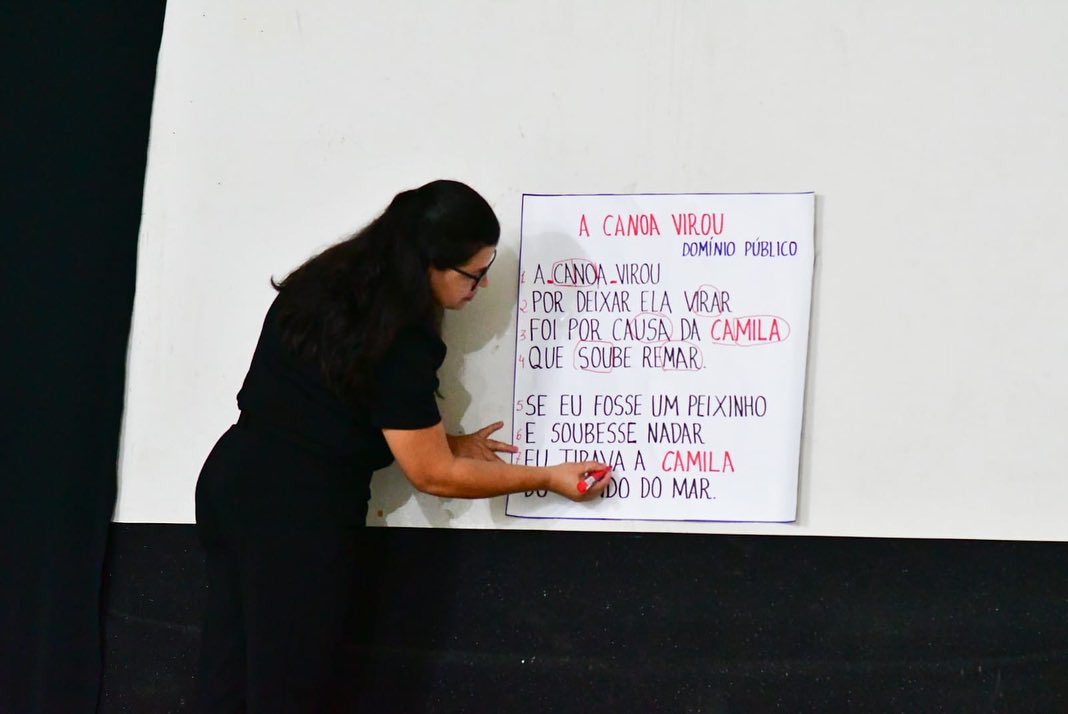 A CANOA VIROU
DOMÍNIO PÚBLICO
1 A CANOA VIROU
2 POR DEIXAR ELA VIRAR
3 FOI POR CAUSA DA CAMILA
4 QUE SOUBE REMAR.
5 SE EU FOSSE UM PEIXINHO
6 E SOUBESSE NADAR
7 EU TIRAVA A CAMILA
DO MAR.